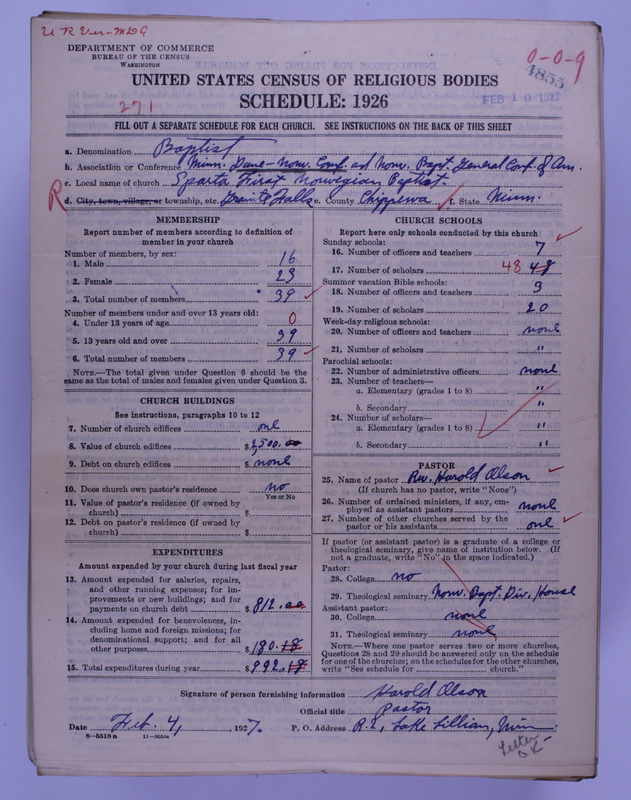 U R Ver-MDG
DEPARTMENT OF COMMERCE
BUREAU OF THE CENSUS
WASHINGTON
0-0-9
4855
UNITED STATES CENSUS OF RELIGIOUS BODIES
SCHEDULE: 1926
271
FEB 10 1927
FILL OUT A SEPARATE SCHEDULE FOR EACH CHURCH. SEE INSTRUCTIONS ON THE BACK OF THIS SHEET
a. Denomination Baptist
b. Association or Conference Minn. Dane-Norw. Conf. and Norw. Bapt. General Conf. of Am.
c. Local name of church Sparta First Norwegian Baptist.
R d. City, town, village, or township, etc. Granite Falls e. County Chippewa f. State Minn.
MEMBERSHIP
Report number of members according to definition of
member in your church
Number of members, by sex:
1. Male 16
2. Female 23
3. Total number of members 39
Number of members under and over 13 years old:
4. Under 13 years of age 0
5. 13 years old and over 39
6. Total number of members 39
NOTE.—The total given under Question 6 should be the
same as the total of males and females given under Question 3.
CHURCH BUILDINGS
See instructions, paragraphs 10 to 12
7. Number of church edifices one
8. Value of church edifices $2,500.00
9. Debt on church edifices $ none
10. Does church own pastor's residence no
Yes or No
11. Value of pastor's residence (if owned by
church) $
12. Debt on pastor's residence (if owned by
church) $
EXPENDITURES
Amount expended by your church during last fiscal year
13. Amount expended for salaries, repairs,
and other running expenses; for im-
provements or new buildings; and for
payments on church debt $ 812.00
14. Amount expended for benevolences, in-
cluding home and foreign missions; for
denominational support; and for all
other purposes $ 180.18
15. Total expenditures during year $ 992.18
CHURCH SCHOOLS
Report here only schools conducted by this church
Sunday schools:
16. Number of officers and teachers 7
17. Number of scholars 48 48
Summer vacation Bible schools:
18. Number of officers and teachers 3
19. Number of scholars 20
Week-day religious schools:
20. Number of officers and teachers none
21. Number of scholars "
Parochial schools:
22. Number of administrative officers none
23. Number of teachers—
a. Elementary (grades 1 to 8) "
b. Secondary "
24. Number of scholars—
a. Elementary (grades 1 to 8) "
b. Secondary "
PASTOR
25. Name of pastor Rev. Harold Olson
(If church has no pastor, write "None")
26. Number of ordained ministers, if any, em-
ployed as assistant pastors none
27. Number of other churches served by the
pastor or his assistants one
If pastor (or assistant pastor) is a graduate of a college or
theological seminary, give name of institution below. (If
not a graduate, write "No" in the space indicated.)
Pastor:
28. College no
29. Theological seminary Norw. Bapt. Div. House
Assistant pastor:
30. College none
31. Theological seminary none
NOTE.—Where one pastor serves two or more churches,
Questions 28 and 29 should be answered only on the schedule
for one of the churches; on the schedules for the other churches,
write "See schedule for church."
Signature of person furnishing information Harold Olson
Official title Pastor
Date Feb. 4, , 1927. P. O. Address R.1, Lake Lillian, Minn
8-5518a
Letter
OK